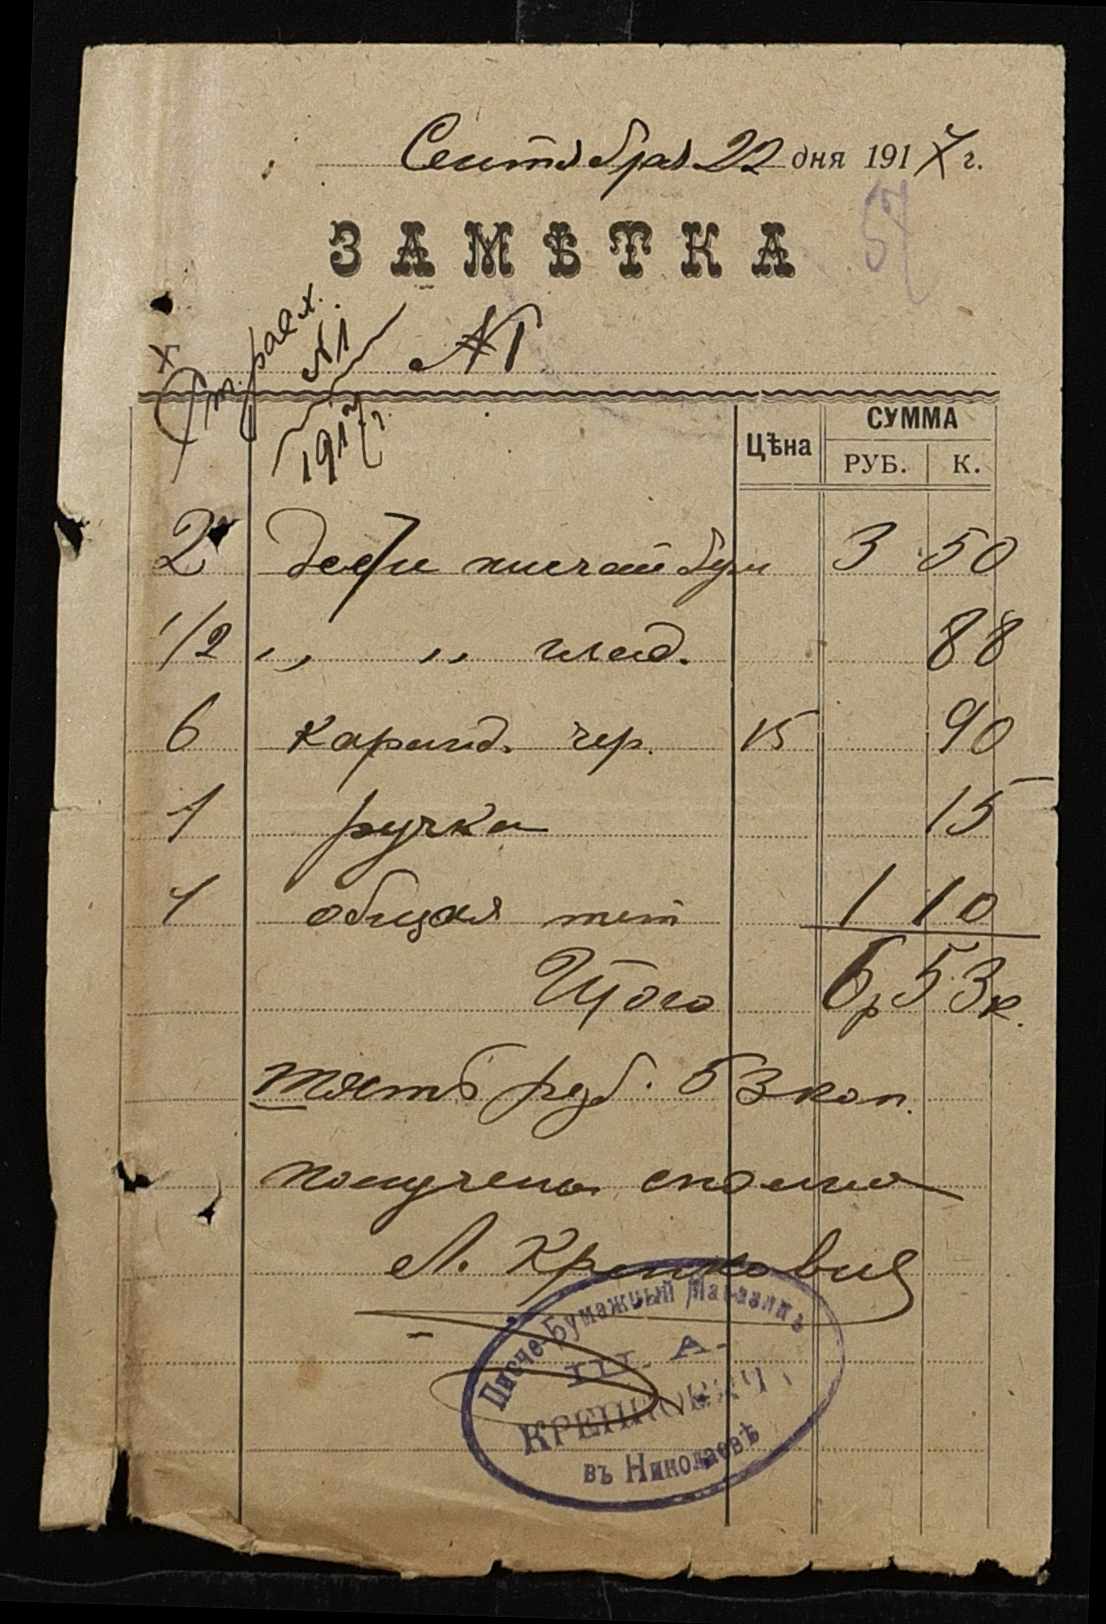 Сентября 22 дня 1917 г.
57
ЗАМѢТКА
Ст. расх.
№ 1
1917 г.
№ 1
Цѣна СУММА
РУБ. К.
2 дести писчей бум 3 50
1/2 " " 88
6 каранд. чер. 15 90
1 ручка 15
1 общая тет 1 10
Итого 6р 53к.
шесть руб. 53 коп.
получена сполна
Писче-Бумажный Магазинъ
Ш. А.
въ Николаевѣ